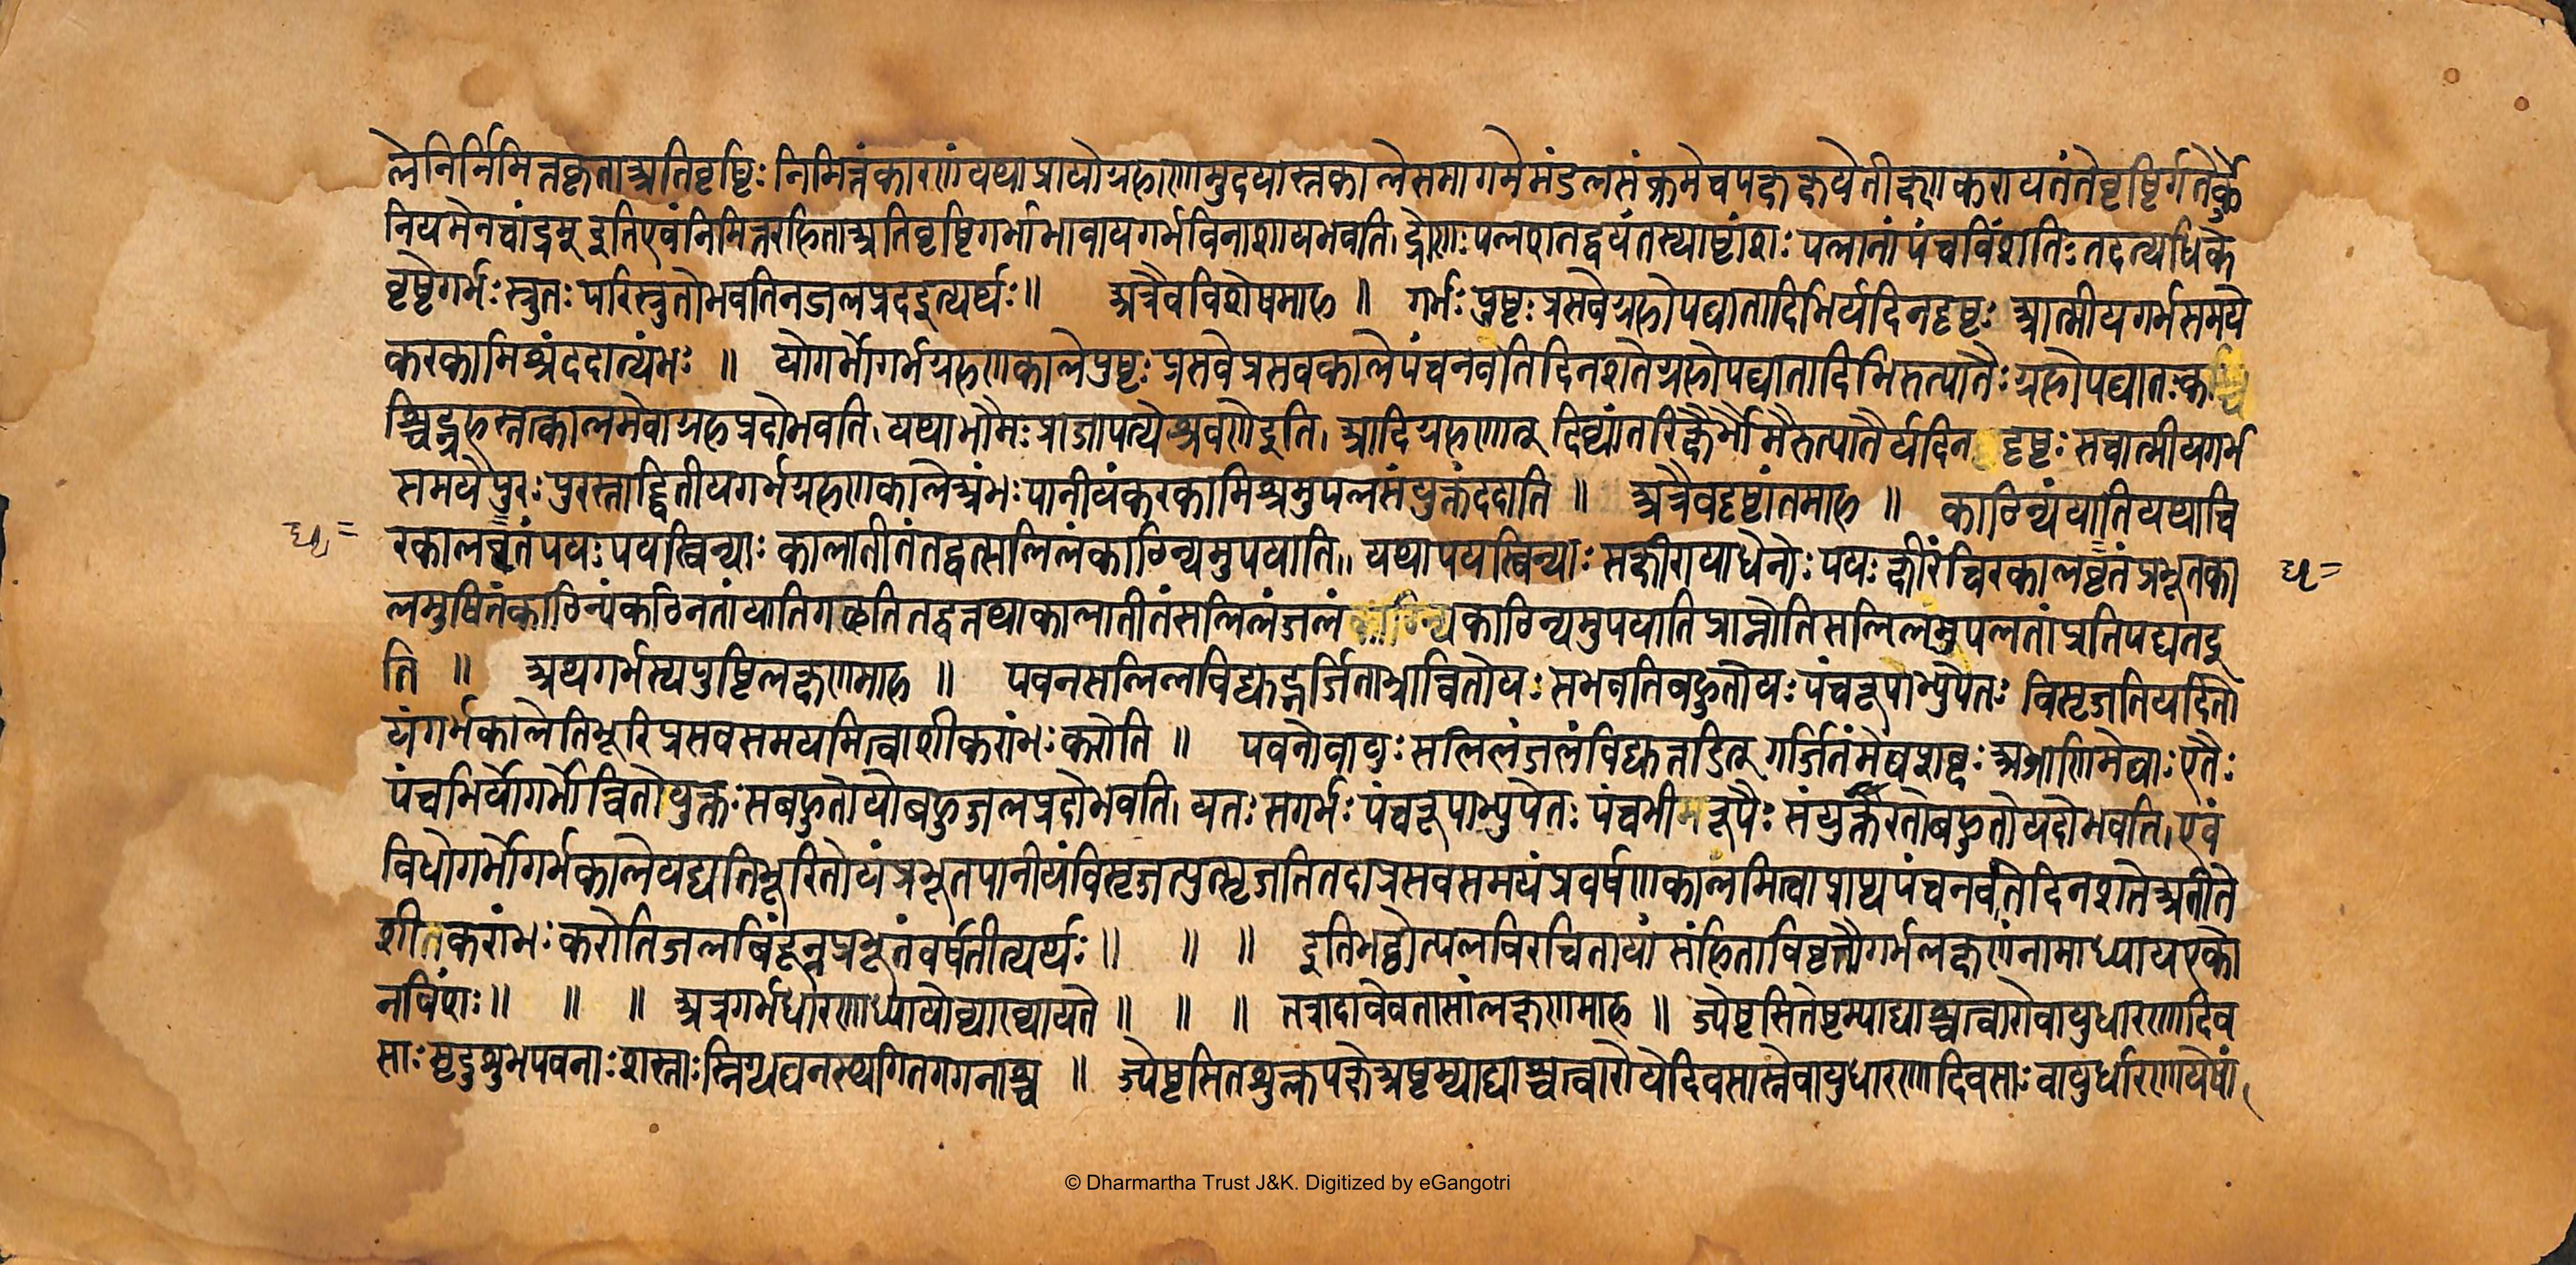 लेनिर्निमित्तकृताअतिवृष्टिः निमित्तंकारणंयथाप्रायोग्रहाणामुदयास्तकालेसमागमेमंडलसंक्रमेचपक्षक्षयेतीक्ष्णकरायनांतेवृष्टिर्गतेर्के
नियमेनचार्द्राम् इतिएवंनिमित्तरहिताअतिवृष्टिगर्भाभावायगर्भविनाशायभवति। द्रोणः पलशतद्वयंतस्याष्टांशः पलानांपंचविंशतिः तदत्यधिके
वृष्टेगर्भः स्त्रुतः परिस्त्रुतोभवतिनजलप्रदइत्यर्थः॥ अत्रैवविशेषमाह ॥ गर्भः पुष्टः प्रसवेग्रहोपघातादिभिर्यदिनदृष्टः आत्मीयगर्भसमये
करकामिश्रंददात्यंभः ॥ योगर्भोगर्भग्रहणकालेपुष्टः प्रसवेप्रसवकालेपंचनवतिदिनशतेग्रहोपघातादिभिरुत्पातैः ग्रहोपघातः क
श्चिद्ग्रहस्तत्कालमेवाग्रहप्रदोभवति। यथाभौमः प्राजापत्येश्रवणेइति। आदिग्रहणात् दिव्यांतरिक्षैर्भौमैरुत्पातैर्यदिन दृष्टः सचात्मीयगर्भ
समयेपुरः पुरस्ताद्द्वितीयगर्भग्रहणकालेअंभः पानीयंकरकामिश्रमुपलसंयुक्तंददाति ॥ अत्रैवदृष्टांतमाह ॥ काठिन्यंयातियथाचि
रकालधृतंपयः पयस्विन्याः कालातीतंतद्वत्सलिलंकाठिन्यमुपयाति॥ यथापयस्विन्याः सक्षीरायाधेनोः पयः क्षीरंचिरकालधृतंप्रभूतका
लमुषितंकाठिन्यंकठिनतांयातिगच्छतितद्वत्तथाकालातीतंसलिलंजलं काठिन्यमुपयातिप्राप्नोतिसलिलमुपलतांप्रतिपद्यतइ
ति ॥ अथगर्भस्यपुष्टिलक्षणमाह ॥ पवनसलिलविद्युद्गर्जिताभ्रान्वितोयः सभवतिबहुतोयः पंचरूपाभ्युपेतः विसृजतियदितो
यंगर्भकालेतिभूरिप्रसवसमयमित्वाशीकरांभः करोति ॥ पवनोवायुः सलिलंजलंविद्युत्तडित् गर्जितंमेघशब्दः अभ्राणिमेघाः एतैः
पंचभिर्योगर्भोन्वितोयुक्तः सबहुतोयोबहुजलप्रदोभवति। यतः सगर्भः पंचरूपाभ्युपेतः पंचभीरूपैः संयुक्तैरतोबहुतोयदोभवति। एवं
विधोगर्भोगर्भकालेयद्यतिभूरितोयंप्रभूतपानीयंविसृजत्युत्सृजतितदाप्रसवसमयंप्रवर्षणकालमित्वाप्राप्यपंचनवतेदिनशतेअतीते
शीकरांभः करोतिजलबिंदून्नप्रभूतंवर्षतीत्यर्थः॥ ॥ ॥ इतिभट्टोत्पलविरचितायां संहिताविवृत्तौगर्भलक्षणंनामाध्यायएको
नविंशः॥ ॥ ॥ अत्रगर्भधारणाध्यायोव्याख्यायते ॥ ॥ ॥ तत्रादावेवतासांलक्षणमाह ॥ ज्येष्टसितेष्टम्याद्याश्चत्वारोवायुधारणादिव
साः मृदुशुभपवनाः शस्ताः स्निग्धघनस्थगितगगनाश्च ॥ ज्येष्टसितशुक्लपक्षेअष्टम्याद्याश्चत्वारोयेदिवसास्तेवायुधारणादिवसाः वायुर्धारणायेषां
धृ=
धृ=
© Dharmartha Trust J&K. Digitized by eGangotri